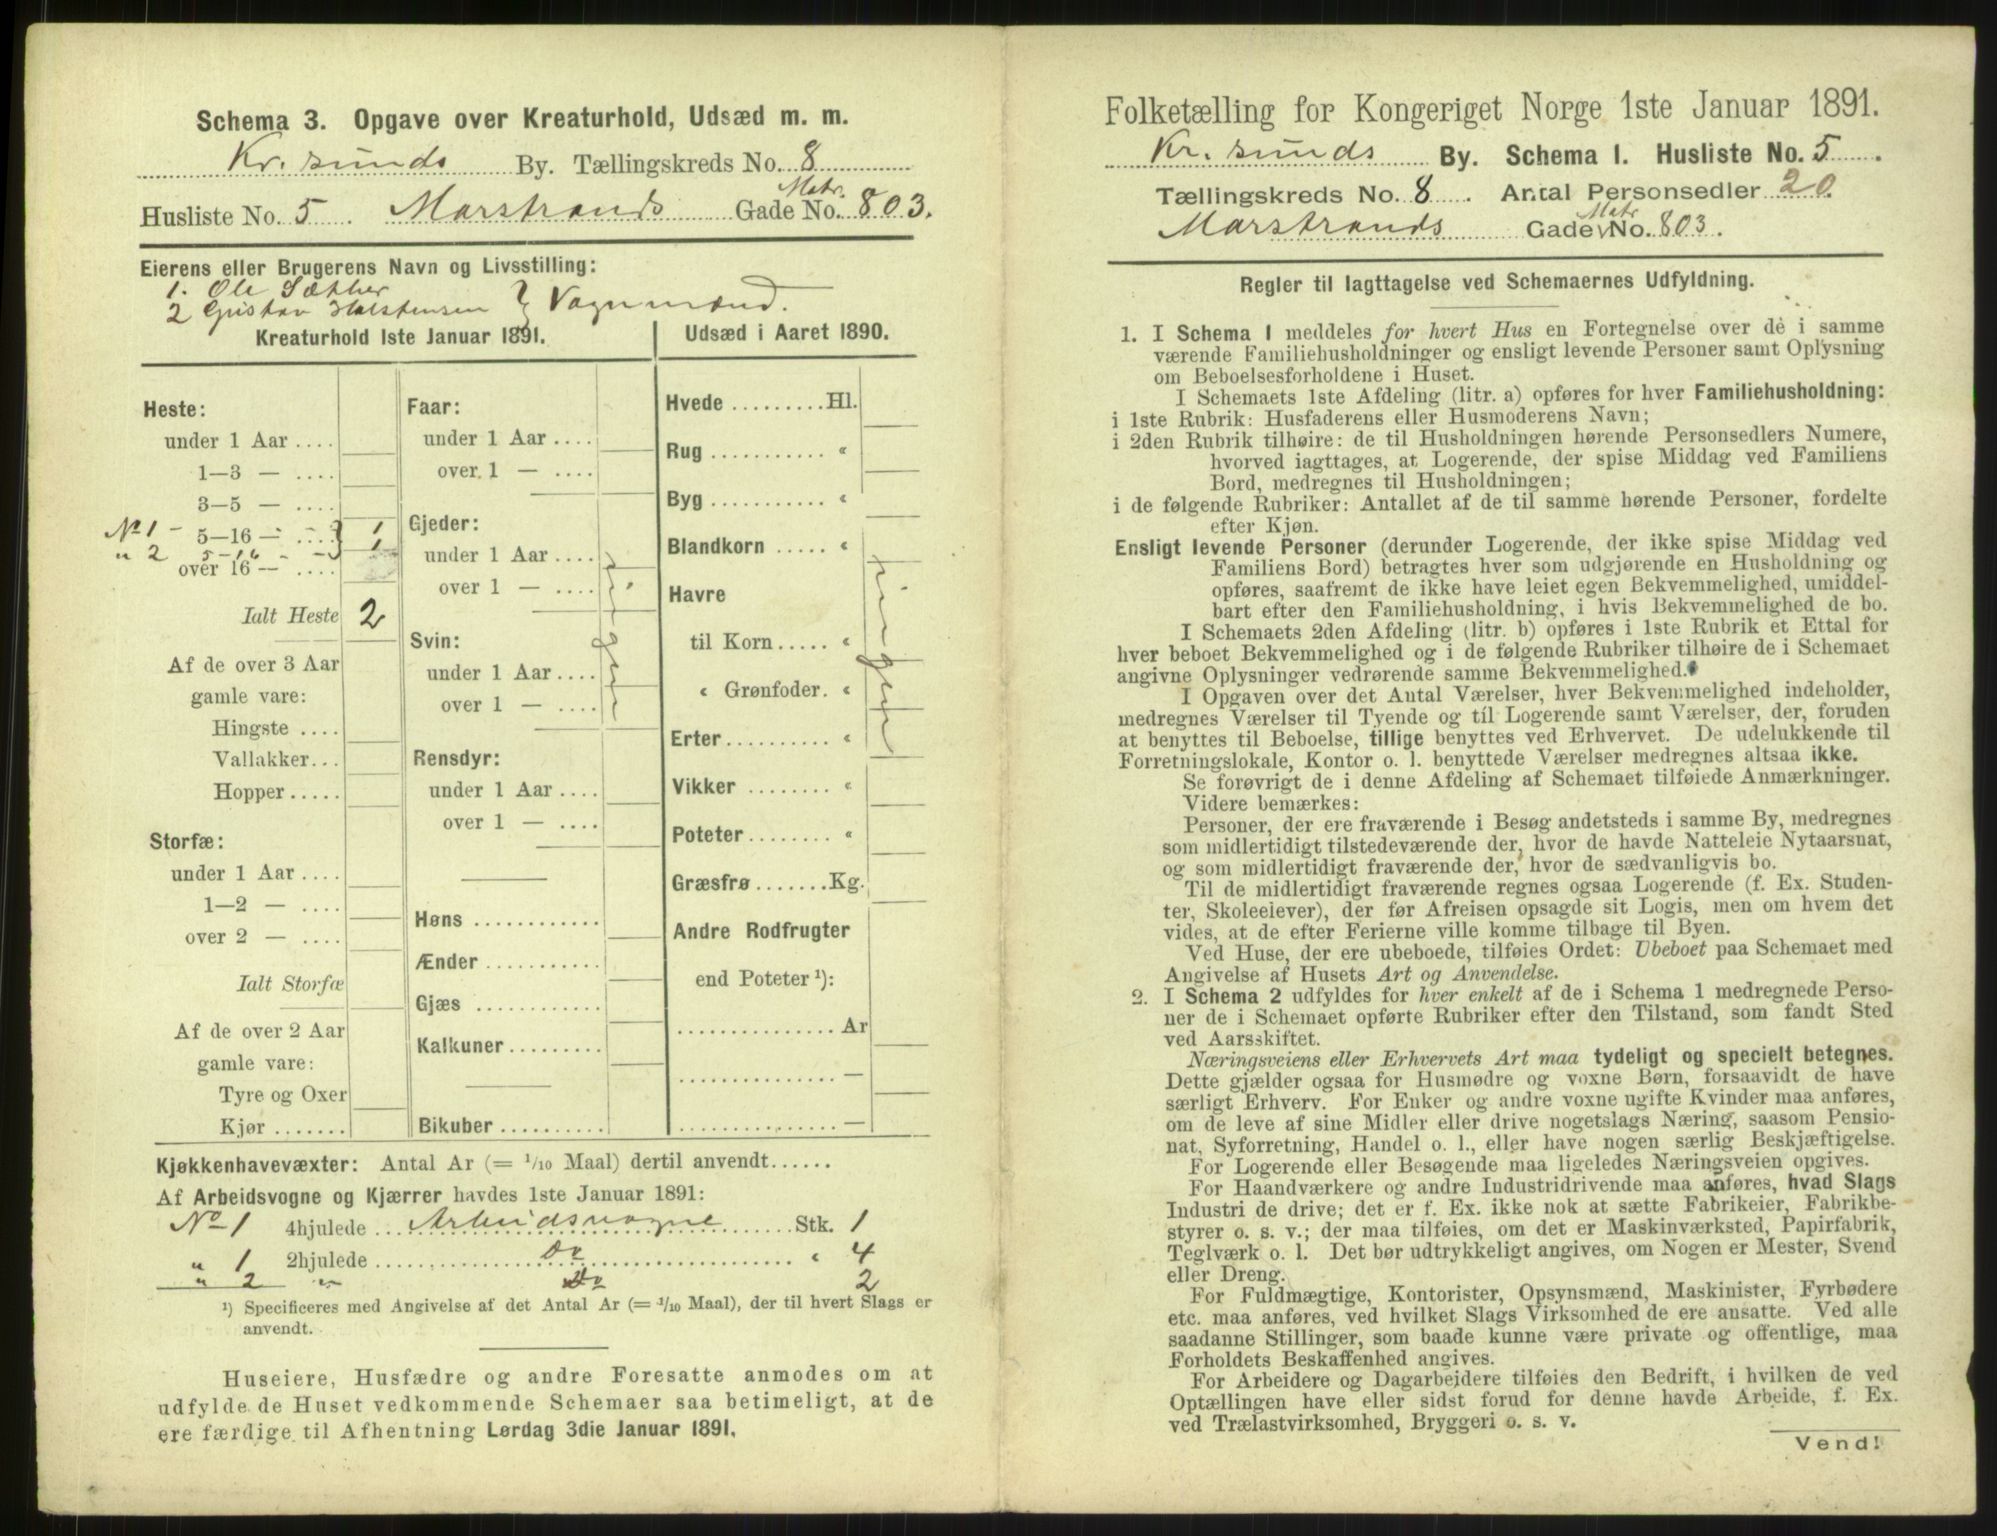 Schema 3. Opgave over Kreaturhold, Udsæd m. m.
Kr. sunds By. Tællingskreds No. 8
Husliste No. 5. Marstrands Gade Matr. No. 803.
Eierens eller Brugerens Navn og Livsstilling:
1. Ole Sæther
2 Gustav Halstensen } Vognmænd.
Kreaturhold 1ste Januar 1891.
Heste:
under 1 Aar ....
1—3 — ....
3—5 — ....
No 1 - 5—16 — .... } 1
" 2 5-16 - - } 1
over 16 — ....
Ialt Heste 2
Af de over 3 Aar
gamle vare:
Hingste ....
Vallakker...
Hopper.....
Storfæ:
under 1 Aar ....
1—2 — ....
over 2 — ....
Ialt Storfæ
Af de over 2 Aar
gamle vare:
Tyre og Oxer
Kjør .......
Faar:
under 1 Aar ....
over 1 — ....
Gjeder:
under 1 Aar ....
over 1 — ....
Svin:
under 1 Aar ....
over 1 — ....
ingen
Rensdyr:
under 1 Aar ....
over 1 — ....
Høns ............
Ænder ...........
Gjæs ............
Kalkuner.........
Bikuber ..........
Udsæd i Aaret 1890.
Hvede .........Hl.
Rug ........... "
Byg ........... "
Blandkorn ..... "
Havre
til Korn..... "
" Grønfoder. "
Erter.......... "
Vikker ........ "
Poteter........ "
Græsfrø .......Kg.
ingen
Andre Rodfrugter
end Poteter ¹):
...............Ar
............... —
............... —
Kjøkkenhavevæxter: Antal Ar (= 1/10 Maal) dertil anvendt......
Af Arbeidsvogne og Kjærrer havdes 1ste Januar 1891:
No 1 4hjulede Arbeidsvogne Stk. 1
" 1 2hjulede Do " 4
" 2 " Do 2
¹) Specificeres med Angivelse af det Antal Ar (= 1/10 Maal), der til hvert Slags er
anvendt.
Huseiere, Husfædre og andre Foresatte anmodes om at
udfylde de Huset vedkommende Schemaer saa betimeligt, at de
ere færdige til Afhentning Lørdag 3die Januar 1891.
Folketælling for Kongeriget Norge 1ste Januar 1891.
Kr. sunds By. Schema I. Husliste No. 5.
Tællingskreds No. 8. Antal Personsedler 20.
Marstrands Gade Matr No. 803.
Regler til Iagttagelse ved Schemaernes Udfyldning.
1. I Schema I meddeles for hvert Hus en Fortegnelse over de i samme
værende Familiehusholdninger og ensligt levende Personer samt Oplysning
om Beboelsesforholdene i Huset.
I Schemaets 1ste Afdeling (litr. a) opføres for hver Familiehusholdning:
i 1ste Rubrik: Husfaderens eller Husmoderens Navn;
i 2den Rubrik tilhøire: de til Husholdningen hørende Personsedlers Numere,
hvorved iagttages, at Logerende, der spise Middag ved Familiens
Bord, medregnes til Husholdningen;
i de følgende Rubriker: Antallet af de til samme hørende Personer, fordelte
efter Kjøn.
Ensligt levende Personer (derunder Logerende, der ikke spise Middag ved
Familiens Bord) betragtes hver som udgjørende en Husholdning og
opføres, saafremt de ikke have leiet egen Bekvemmelighed, umiddel-
bart efter den Familiehusholdning, i hvis Bekvemmelighed de bo.
I Schemaets 2den Afdeling (litr. b) opføres i 1ste Rubrik et Ettal for
hver beboet Bekvemmelighed og i de følgende Rubriker tilhøire de i Schemaet
angivne Oplysninger vedrørende samme Bekvemmelighed.
I Opgaven over det Antal Værelser, hver Bekvemmelighed indeholder,
medregnes Værelser til Tyende og til Logerende samt Værelser, der, foruden
at benyttes til Beboelse, tillige benyttes ved Erhvervet. De udelukkende til
Forretningslokale, Kontor o. l. benyttede Værelser medregnes altsaa ikke.
Se forøvrigt de i denne Afdeling af Schemaet tilføiede Anmærkninger.
Videre bemærkes:
Personer, der ere fraværende i Besøg andetsteds i samme By, medregnes
som midlertidigt tilstedeværende der, hvor de havde Natteleie Nytaarsnat,
og som midlertidigt fraværende der, hvor de sædvanligvis bo.
Til de midlertidigt fraværende regnes ogsaa Logerende (f. Ex. Studen-
ter, Skoleeiever), der før Afreisen opsagde sit Logis, men om hvem det
vides, at de efter Ferierne ville komme tilbage til Byen.
Ved Huse, der ere ubeboede, tilføies Ordet: Ubeboet paa Schemaet med
Angivelse af Husets Art og Anvendelse.
2. I Schema 2 udfyldes for hver enkelt af de i Schema 1 medregnede Perso-
ner de i Schemaet opførte Rubriker efter den Tilstand, som fandt Sted
ved Aarsskiftet.
Næringsveiens eller Erhvervets Art maa tydeligt og specielt betegnes.
Dette gjælder ogsaa for Husmødre og voxne Børn, forsaavidt de have
særligt Erhverv. For Enker og andre voxne ugifte Kvinder maa anføres,
om de leve af sine Midler eller drive nogetslags Næring, saasom Pensio-
nat, Syforretning, Handel o. l., eller have nogen særlig Beskjæftigelse.
For Logerende eller Besøgende maa ligeledes Næringsveien opgives.
For Haandværkere og andre Industridrivende maa anføres, hvad Slags
Industri de drive; det er f. Ex. ikke nok at sætte Fabrikeier, Fabrikbe-
styrer o. s. v.; der maa tilføies, om det er Maskinværksted, Papirfabrik,
Teglværk o. l. Det bør udtrykkeligt angives, om Nogen er Mester, Svend
eller Dreng.
For Fuldmægtige, Kontorister, Opsynsmænd, Maskinister, Fyrbødere
etc. maa anføres, ved hvilket Slags Virksomhed de ere ansatte. Ved alle
saadanne Stillinger, som baade kunne være private og offentlige, maa
Forholdets Beskaffenhed angives.
For Arbeidere og Dagarbejdere tilføies den Bedrift, i hvilken de ved
Optællingen have eller sidst forud for denne havde Arbeide, f. Ex.
ved Trælastvirksomhed, Bryggeri o. s. v.
Vend!